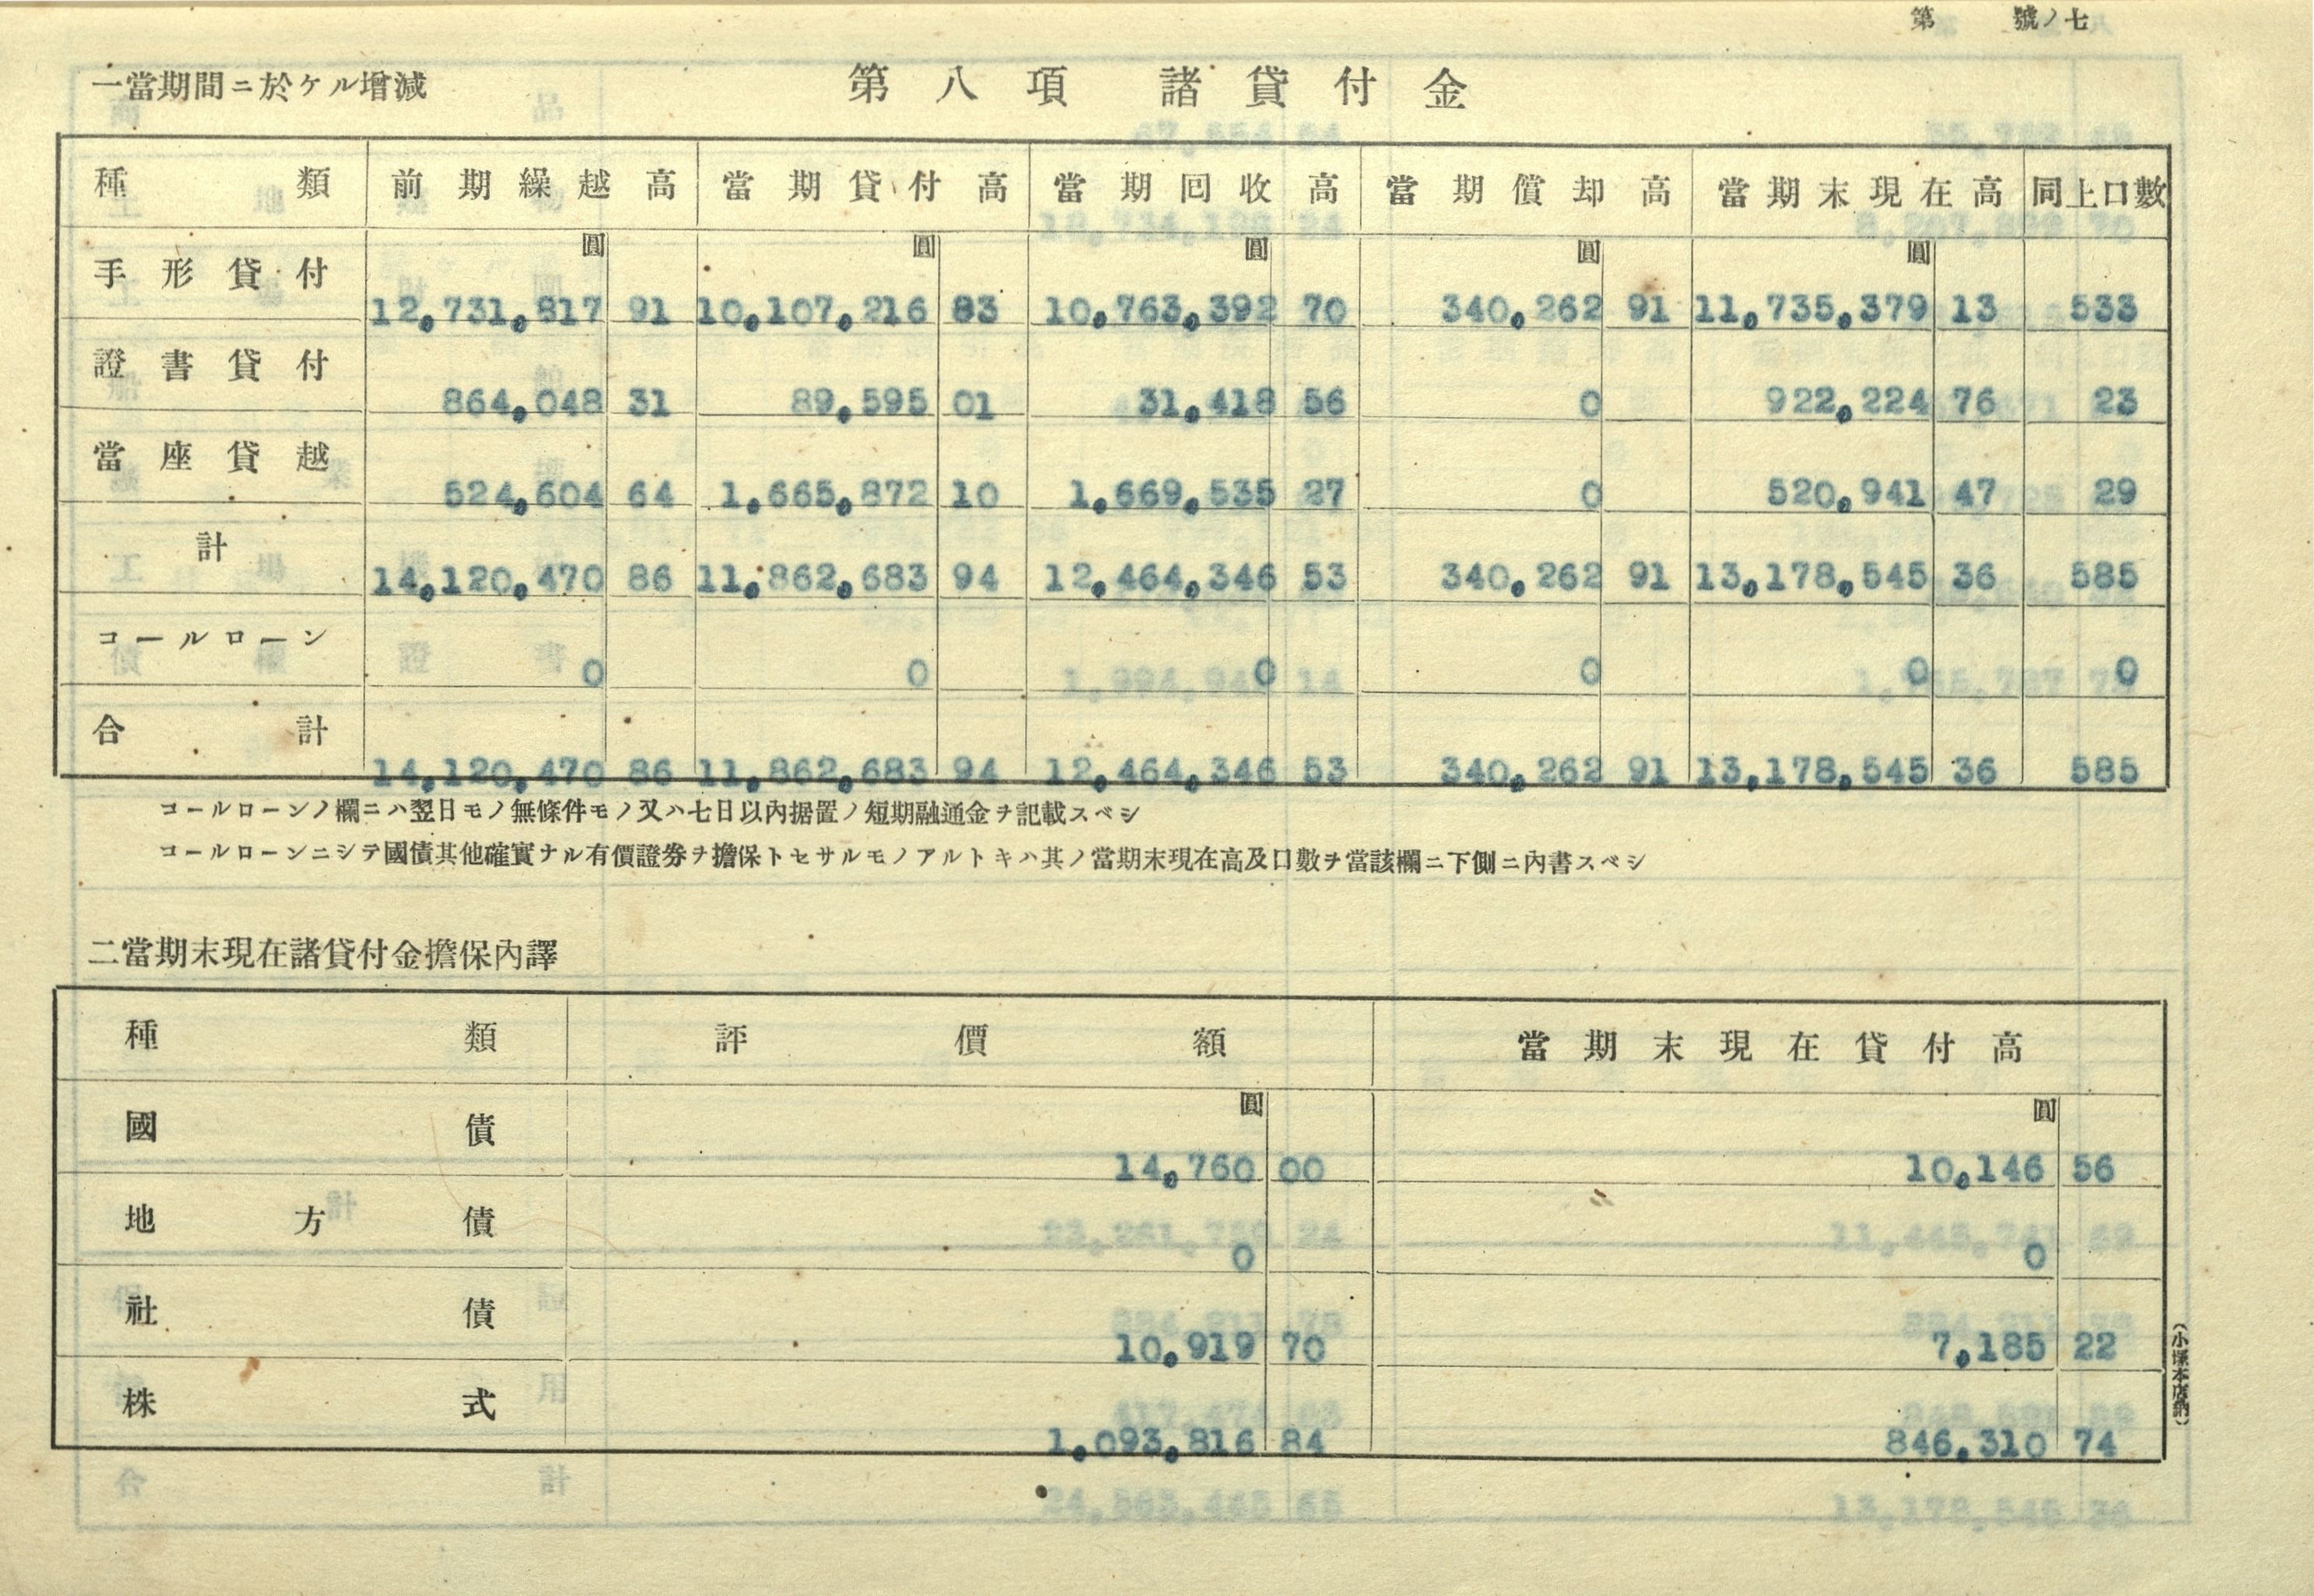 第 號ノ七
第八項 諸貸付金
一當期間ニ於ケル增減
種類 前期繰越高 當期貸付高 當期回收高 當期償却高 當期末現在高 同上口數
圓 圓 圓 圓 圓
手形貸付 12,731,817 91 10,107,216 83 10,763,392 70 340,262 91 11,735,379 13 533
證書貸付 864,048 31 89,595 01 31,418 56 0 922,224 76 23
當座貸越 524,604 64 1,665,872 10 1,669,535 27 0 520,941 47 29
計 14,120,470 86 11,862,683 94 12,464,346 53 340,262 91 13,178,545 36 585
コールローン 0 0 0 0 0 0
合計 14,120,470 86 11,862,683 94 12,464,346 53 340,262 91 13,178,545 36 585
コールローンノ欄ニハ翌日モノ無條件モノ又ハ七日以內据置ノ短期融通金ヲ記載スベシ
コールローンニシテ國債其他確實ナル有價證券ヲ擔保トセサルモノアルトキハ其ノ當期末現在高及口數ヲ當該欄ニ下側ニ內書スベシ
二當期末現在諸貸付金擔保內譯
種類 評價額 當期末現在貸付高
圓 圓
國債 14,760 00 10,146 56
地方債 0 0
社債 10,919 70 7,185 22
株式 1,093,816 84 846,310 74
(小塚本店納)